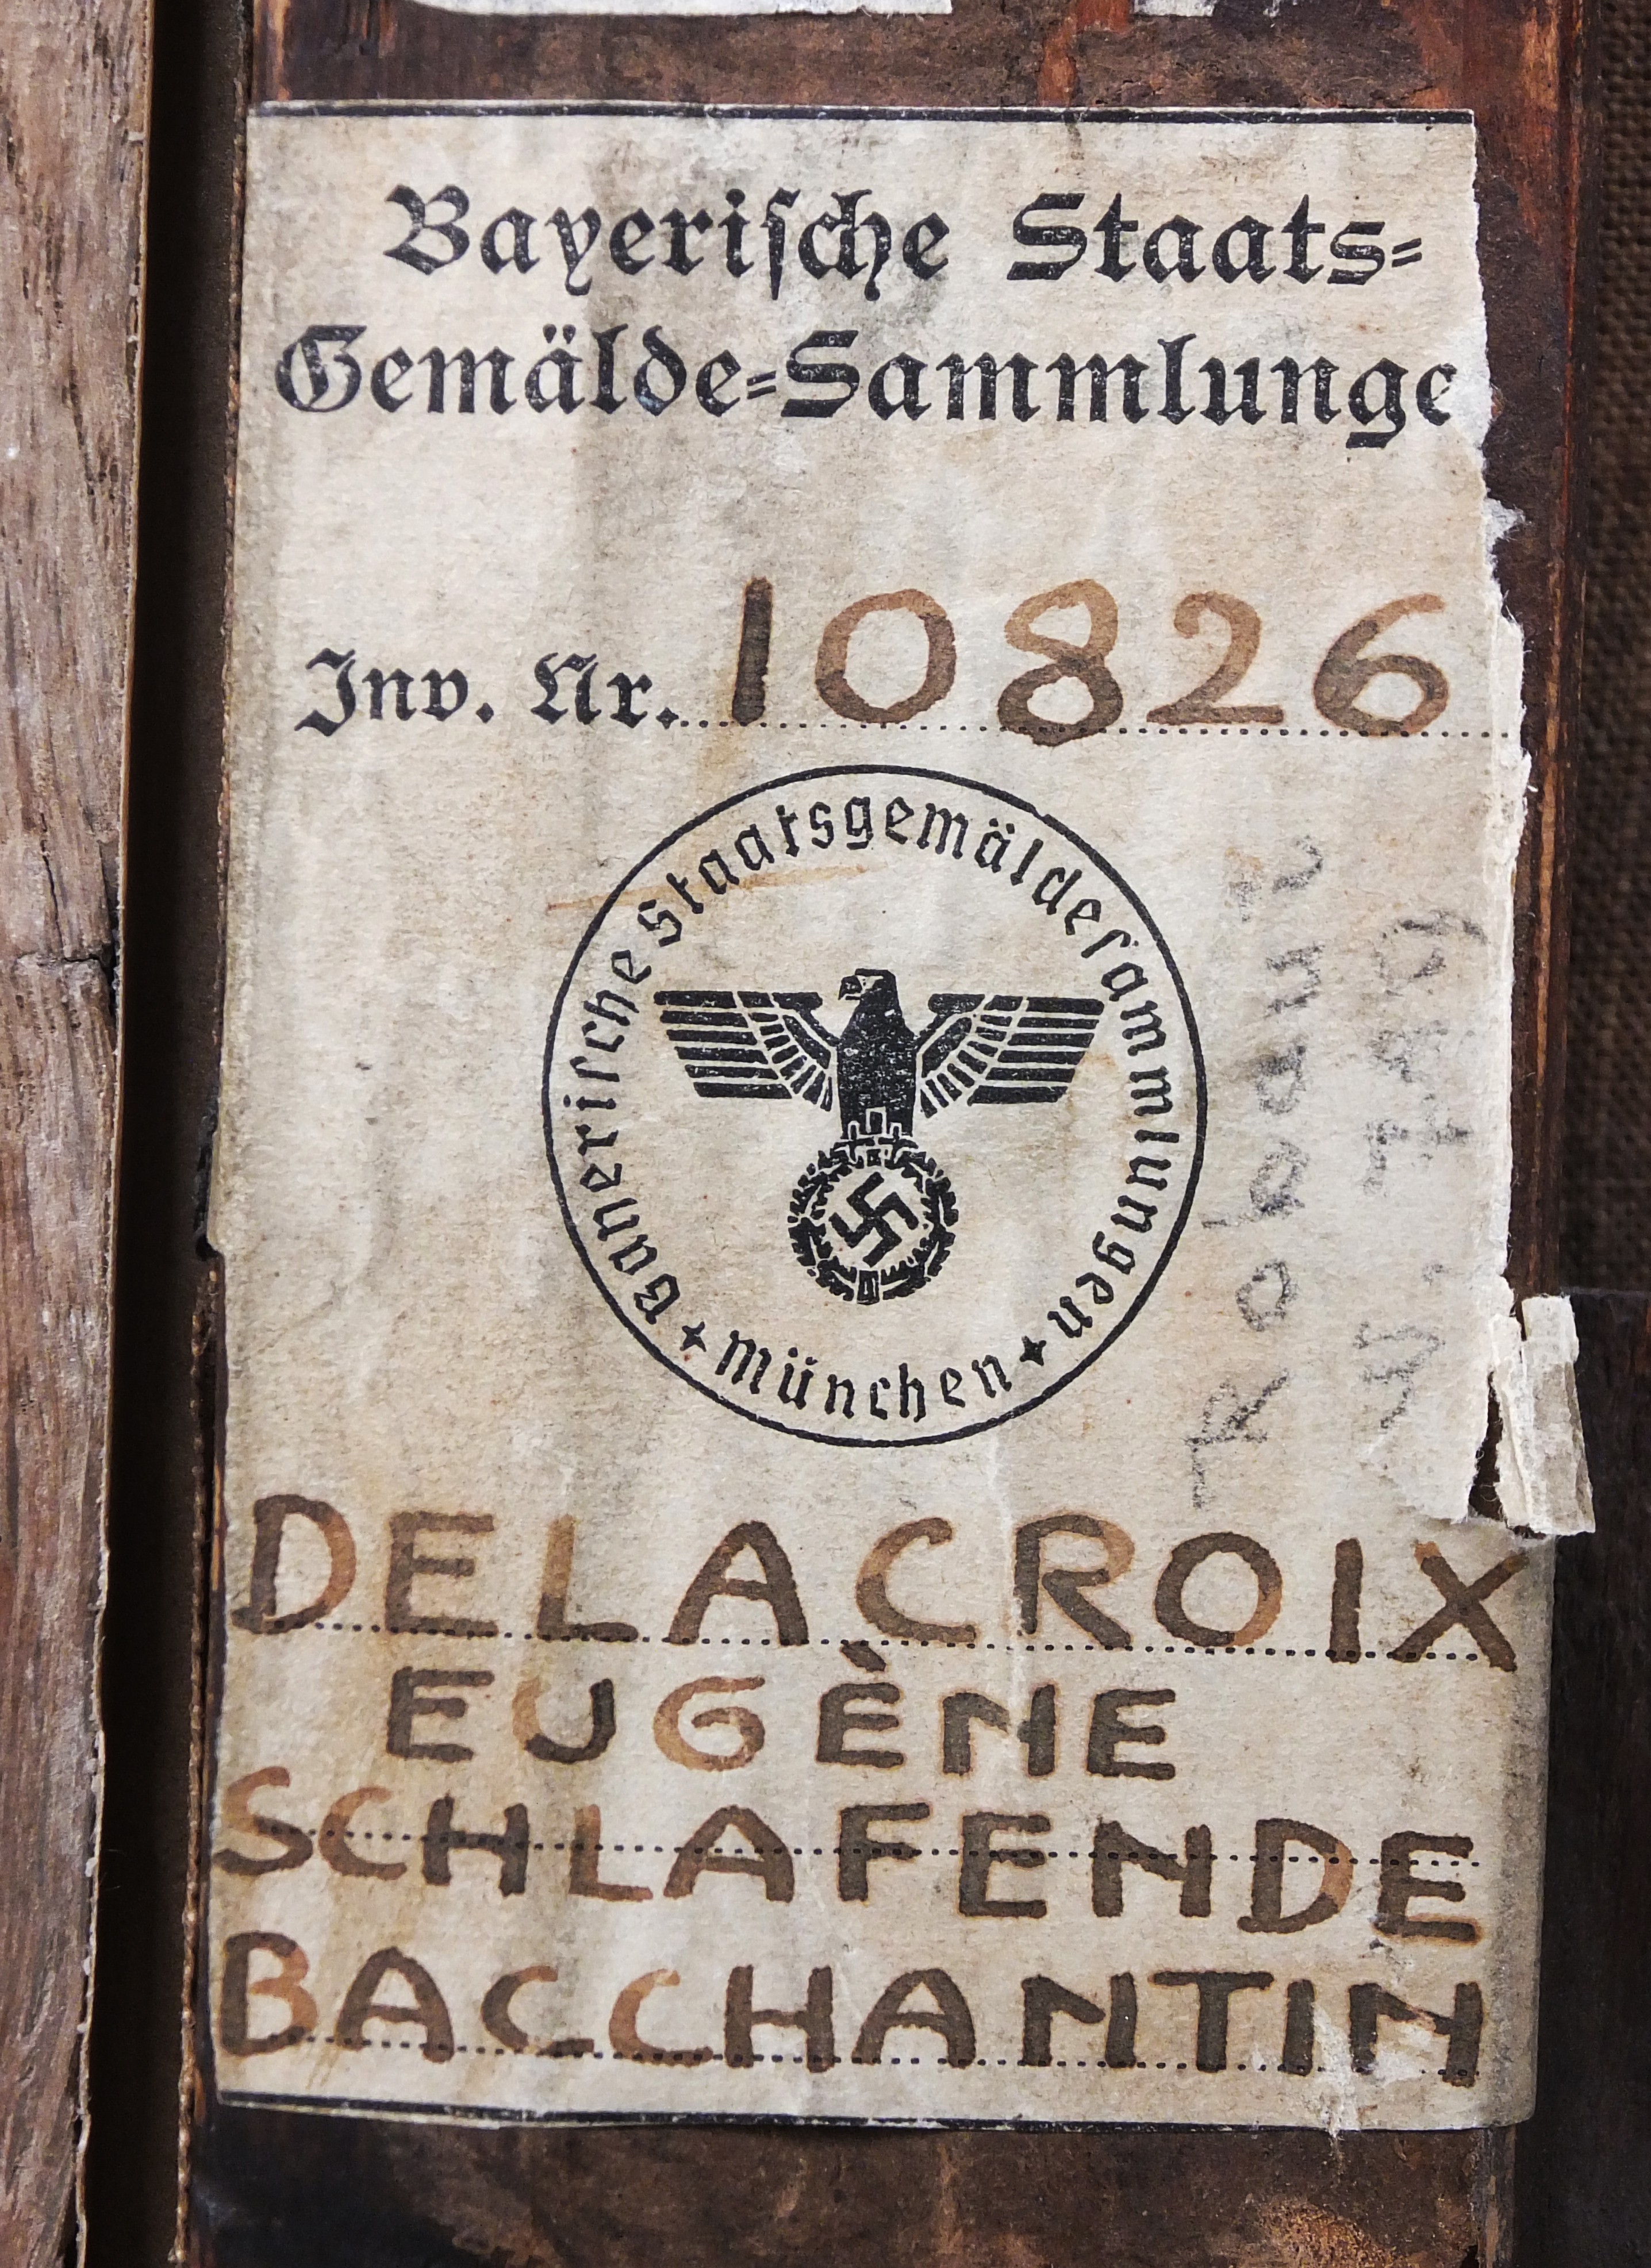 Bayeriſche Staats=
Gemälde=Sammlunge
Inv. Nr. 10826
Bayeriſche Staatsgemäldeſammlungen
✦ München ✦
DELACROIX
EUGÈNE
SCHLAFENDE
BACCHANTIN